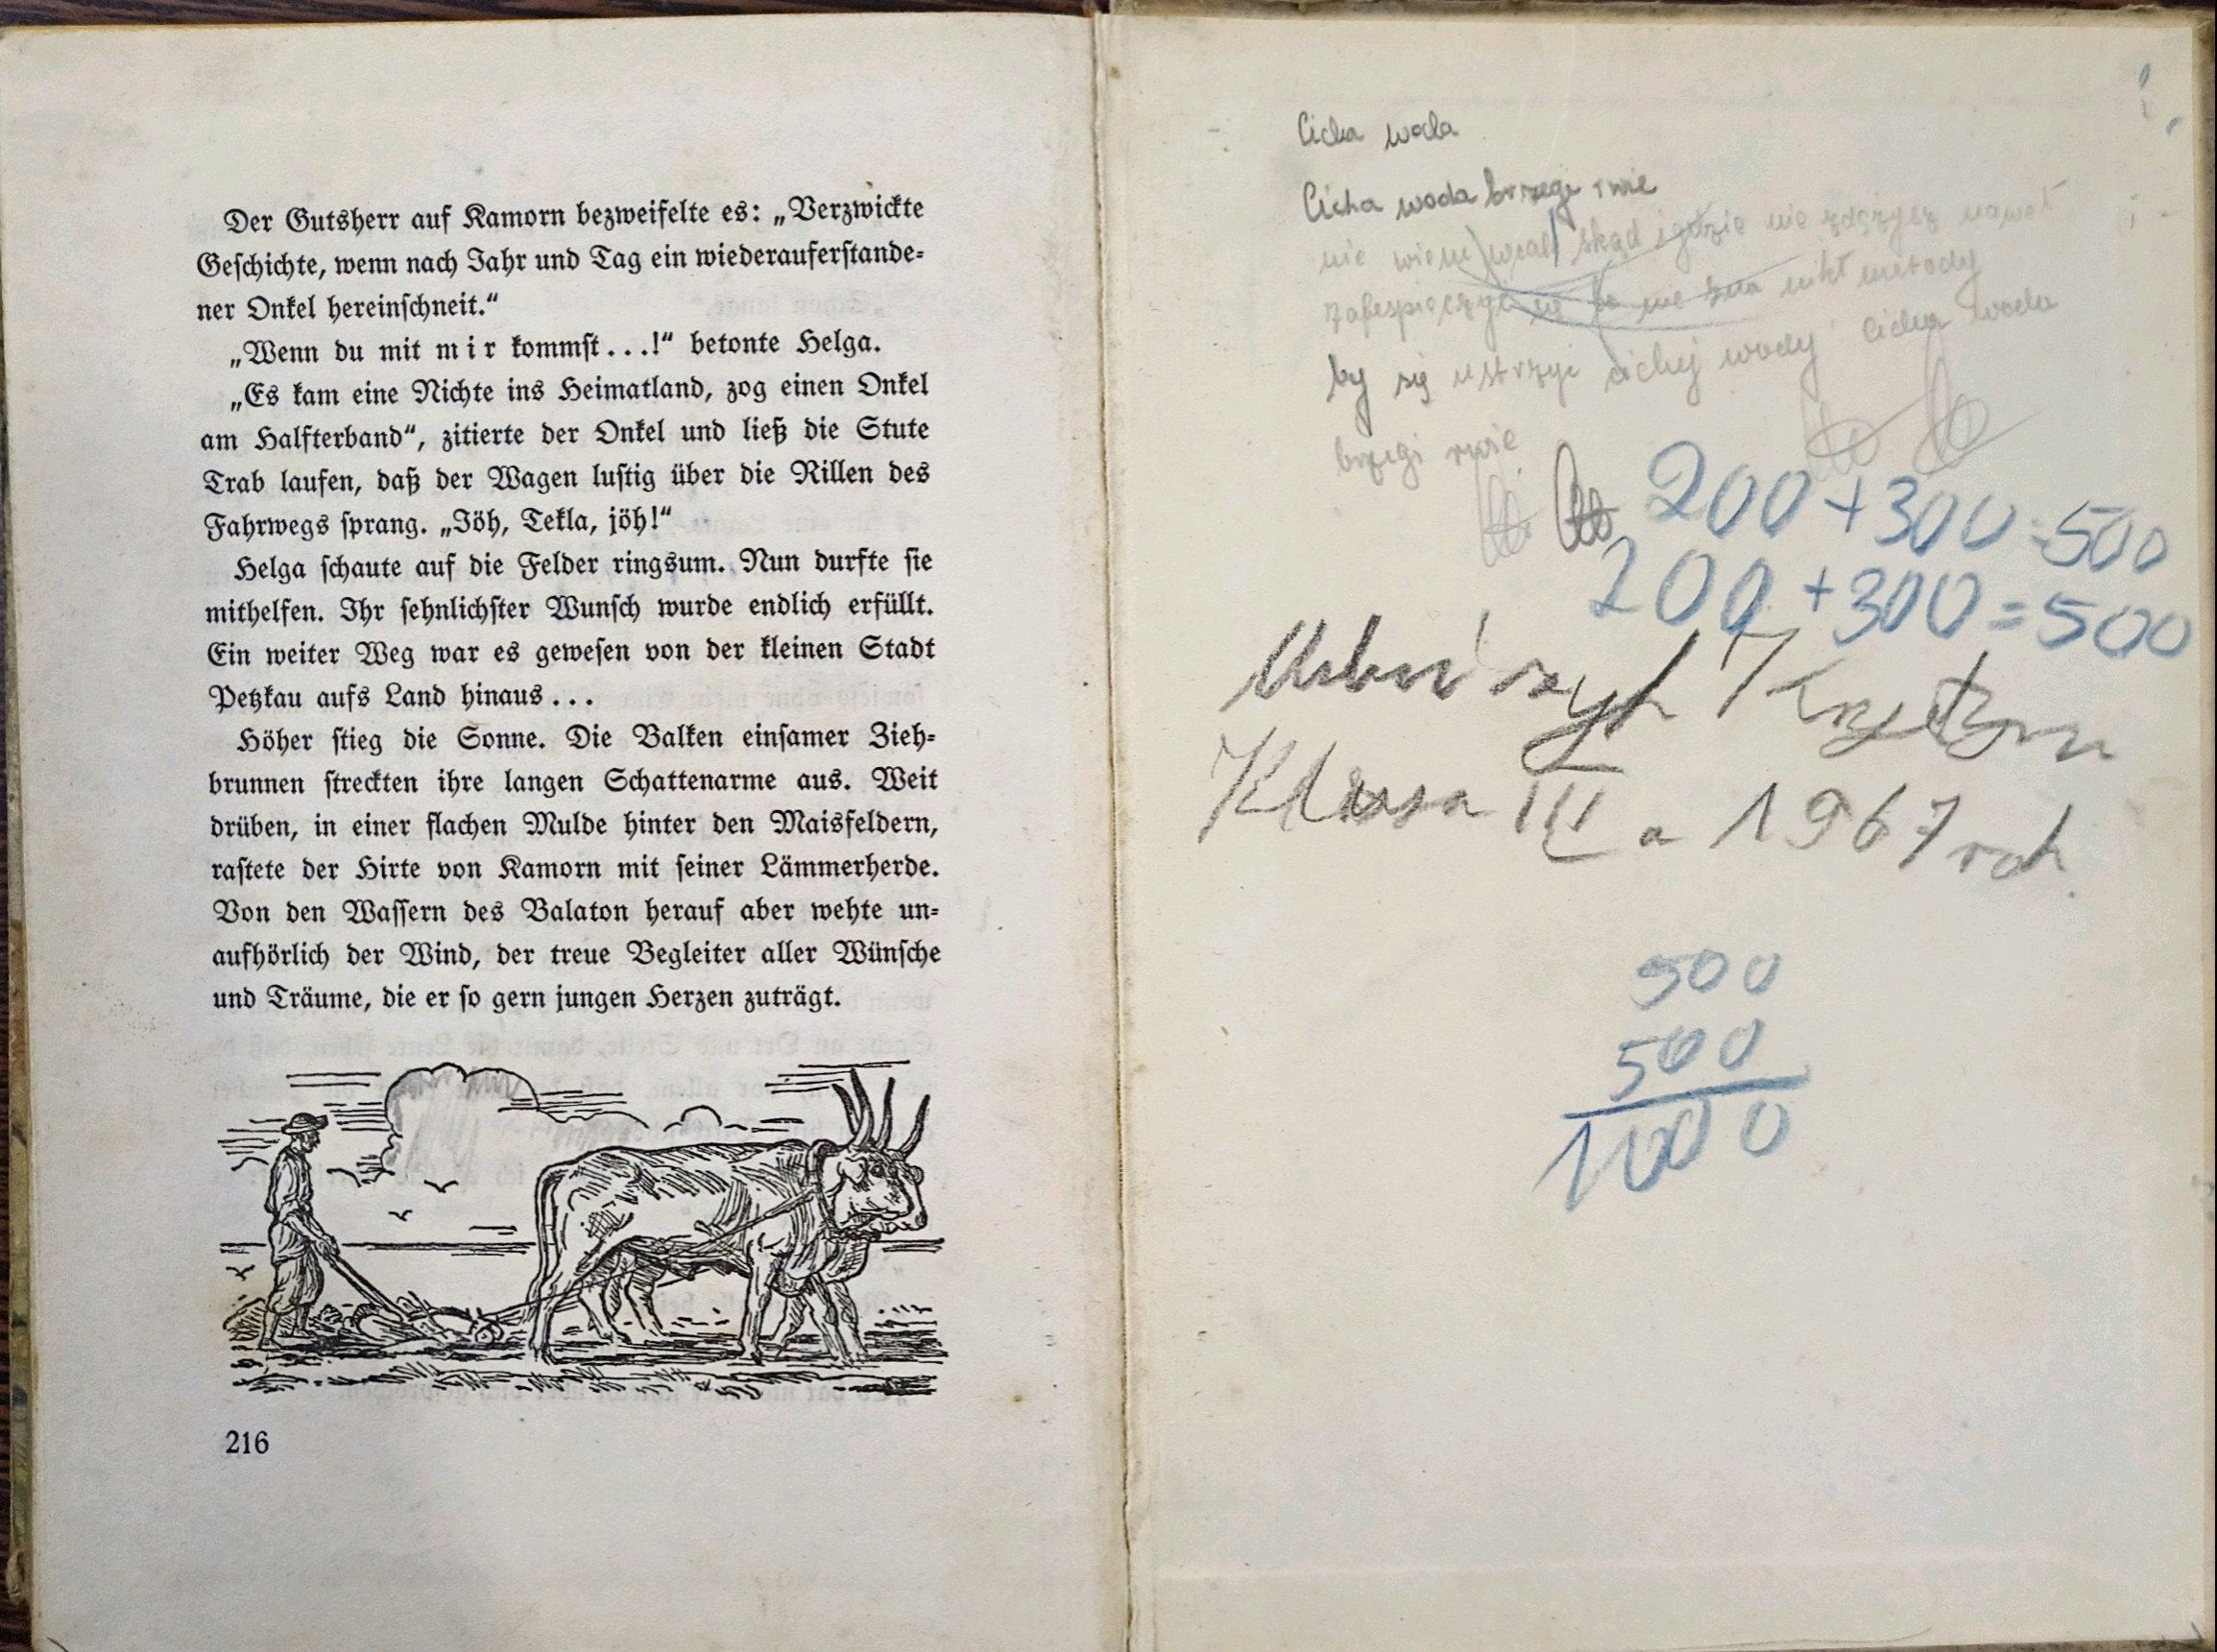 Der Gutsherr auf Kamorn bezweifelte es: „Verzwickte
Geschichte, wenn nach Jahr und Tag ein wiederauferstande-
ner Onkel hereinschneit.“
„Wenn du mit mir kommst...!“ betonte Helga.
„Es kam eine Nichte ins Heimatland, zog einen Onkel
am Halfterband“, zitierte der Onkel und ließ die Stute
Trab laufen, daß der Wagen lustig über die Rillen des
Fahrwegs sprang. „Jöh, Tekla, jöh!“
Helga schaute auf die Felder ringsum. Nun durfte sie
mithelfen. Ihr sehnlichster Wunsch wurde endlich erfüllt.
Ein weiter Weg war es gewesen von der kleinen Stadt
Petzkau aufs Land hinaus...
Höher stieg die Sonne. Die Balken einsamer Zieh-
brunnen streckten ihre langen Schattenarme aus. Weit
drüben, in einer flachen Mulde hinter den Maisfeldern,
rastete der Hirte von Kamorn mit seiner Lämmerherde.
Von den Wassern des Balaton herauf aber wehte un-
aufhörlich der Wind, der treue Begleiter aller Wünsche
und Träume, die er so gern jungen Herzen zuträgt.
216
Cicha woda
Cicha woda brzegi rwie
nie wiem wcale skąd i gdzie nie zdążysz nawet
zabespieczyć się bo nie zna nikt metody
by się ustrzyc cichej wody cicha woda
brzegi rwie
200+300=500
200+300=500
Klasa III a 1967 rok
500
500
1000